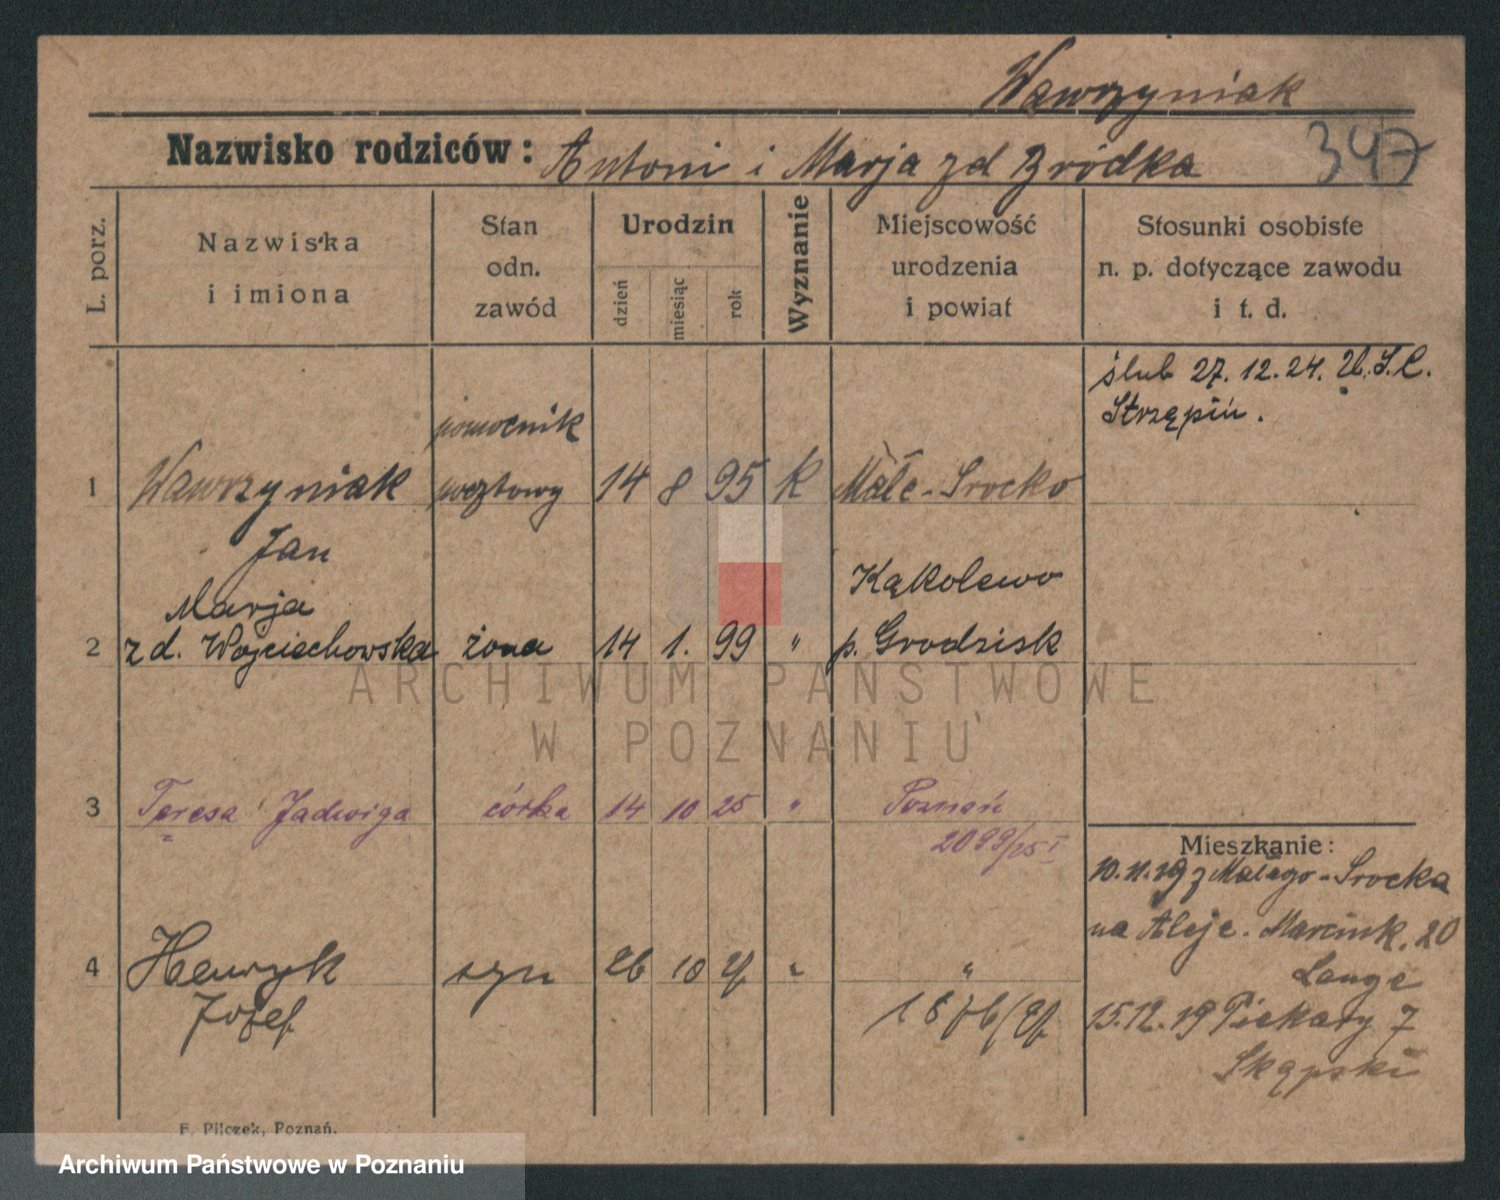 Wawrzyniak
347
Nazwisko rodziców: Antoni i Marja zd Bródka
L. porz.
Nazwiska
i imiona
Stan
odn.
zawód
Urodzin
dzień
miesiąc
rok
Wyznanie
Miejscowość
urodzenia
i powiat
Stosunki osobiste
n. p. dotyczące zawodu
i t. d.
ślub 27. 12. 24. Ub. S. C.
Strzępiń.
pomocnik
1 Wawrzyniak pocztowy 14 8 95 K Małe-Srocko
Jan
Marja Kąkolewo
2 z d. Wojciechowska żona 14 1. 99 " p. Grodzisk
ARCHIWUM PAŃSTWOWE
W POZNANIU
3 Teresa Jadwiga córka 14 10 25 " Poznań
2099/25 I
4 Henryk syn 26 10 27 " "
Józef 1876/27
Mieszkanie:
10.11.19 z Małego-Srocka
na Aleje. Marcink. 20
Lange
15.12.19 Piekary 7
Skąpski
F. Pilczek, Poznań.
Archiwum Państwowe w Poznaniu